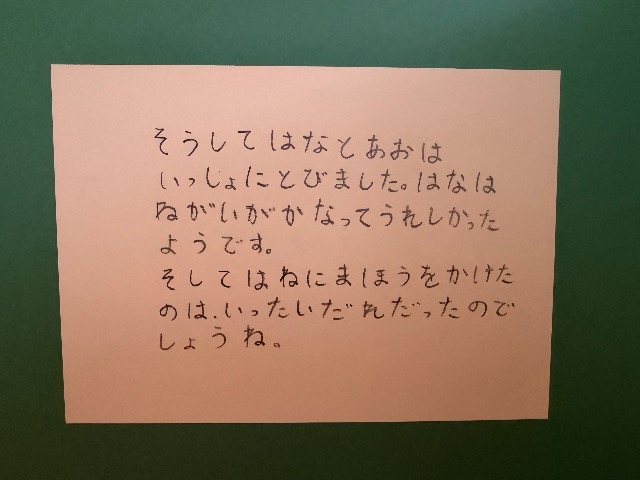 そうしてはなとあおは
いっしょにとびました。はなは
ねがいがかなってうれしかった
ようです。
そしてはねにまほうをかけた
のは、いったいだれだったので
しょうね。